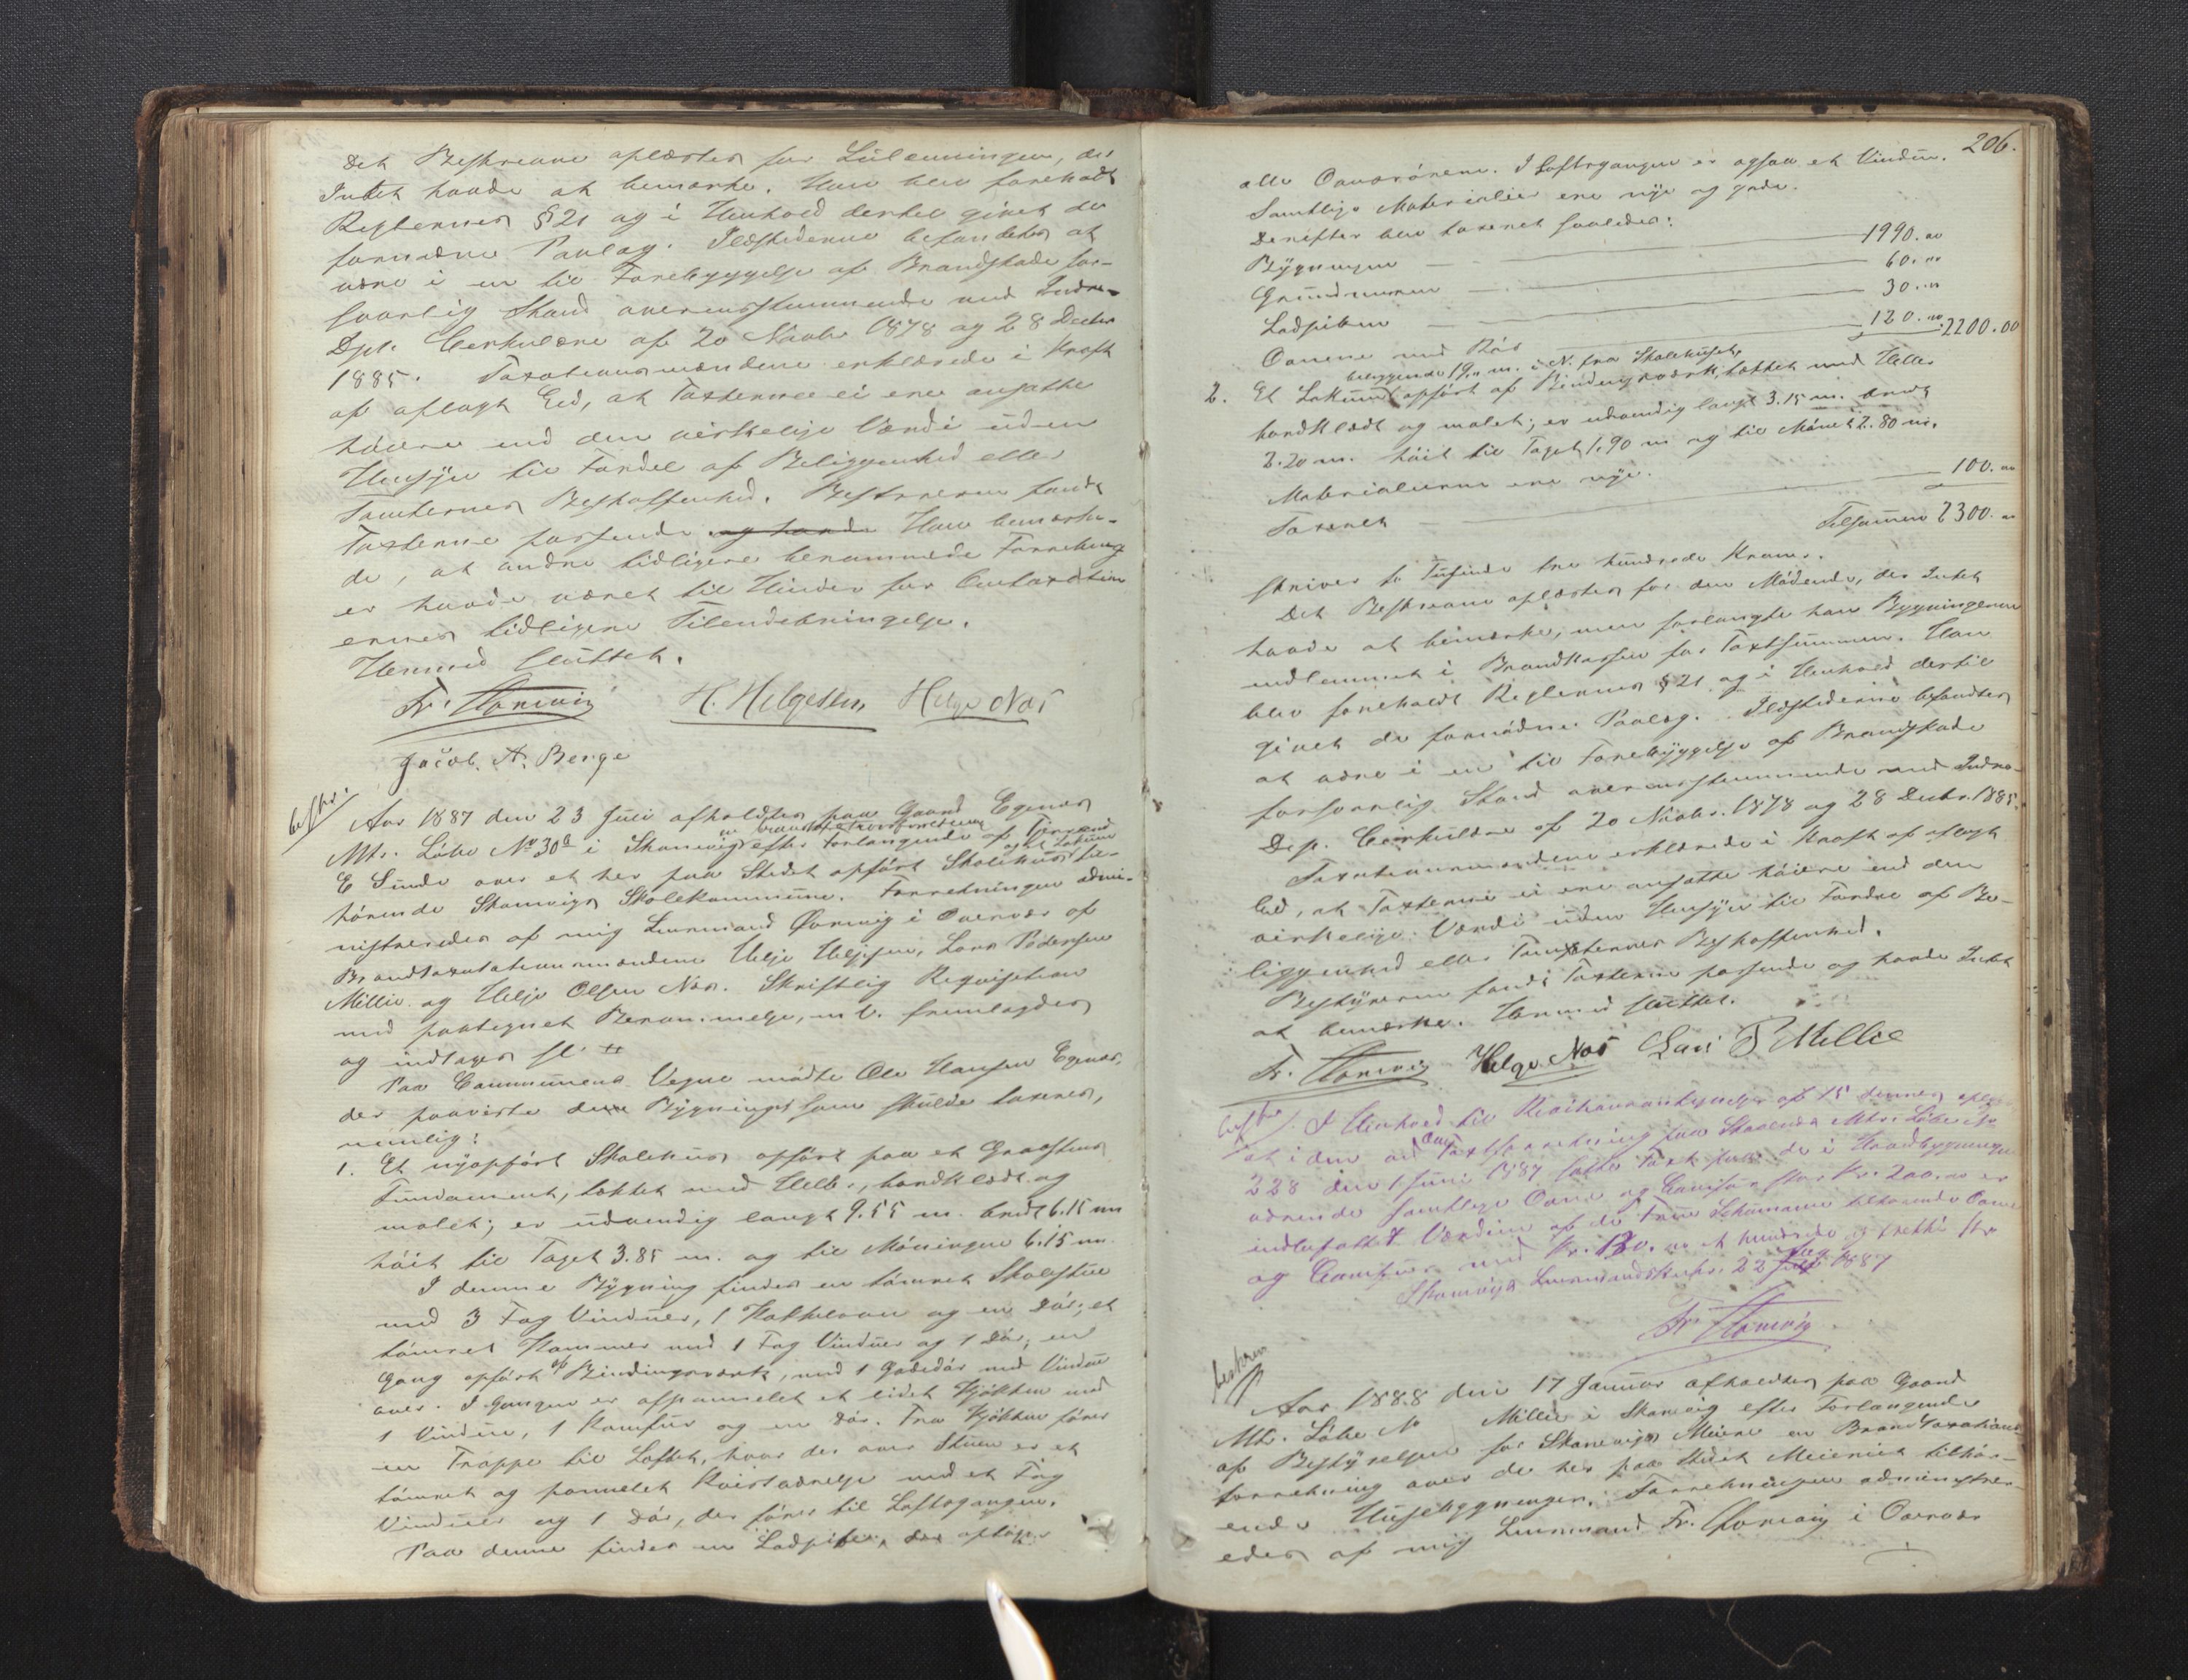 Det Beskrevne oplæstes for Lülemningen, der
Intet havde at bemærke. Han blev foreholdt
Reglernes § 21 og i Henhold dertil givet de
fornødne Paalæg. Ildstederne befandtes at
være i en til Forebyggelse af Brandskade for-
svarlig Stand overensstemmende med Indre-
Dpt. Cirkulære af 20 Novbr 1878 og 28 Decbr
1885. Taxationsmændene erklærede i Kraft
af aflagt Eed, at Taxterne ei ere ansatte
høiere end den virkelige Værdi uden
Hensyn til Fordel af Beliggenhed eller
Tomternes Beskaffenhed. Bestyreren fandt
Taxterne passende og havde Han bemærke-
de, at andre tidligere berammede Forretning
er havde været til Hinder for
ernes tidligere Tilendebringelse.
Hermed sluttet.
Fr. Hornvig H. Helgesen Helge Næs
Jacob. A. Berge
beskr.
Aar 1887 den 23 Juli afholdtes paa Gaard Egenæs
en brandtaxtforretning
Mtr. Løbe No 30a i Skonevig efter Forlangende af
og et Lokum
E Sunde over et her paa Stedet opført Skolehus til-
hørende Skonevigs Skolekommune. Forretningen admi-
nistreredes af mig Lensmand Hornvig i Overvær af
Brandtaxationsmændene Helje Heljesen, Lars Pedersen
Millie og Helje Olsen Næs. Skriftlig Reqvisition
med paategnet Berammelse, m.v. fremlagdes
og indtages sl.
Paa Communens Vegne mødte Ole Hansen Egenæs,
der paaviste de Bygninger som skulde taxeres,
nemlig:
1. Et nyopført Skolehus opført paa et Graastens
Fundament, tækket med Heller, bordklædt og
malet; er udvendig langt 9.55 m. bredt 6.15 m
høit til Taget 3.85 m. og til Møningen 6.15 m.
I denne Bygning findes en tømret Skolestue
med 3 Fag Vinduer, 1 Kakkelovn og en Dør; et
tømret Kammer med 1 Fag Vinduer og 1 Dør; en
Gang opført af Bindingsværk, med 1 Gadedør med Vindue
over. I Gangen er afpannelet et lidet Kjøkken med
1 Vindue, 1 Komfur og en Dør. Fra Kjøkken fører
en Trappe til Loftet, hvor der over Stuen er et
tømret og pannelet Kvistværelse med et Fag
Vinduer og 1 Dør, der fører til Loftsgangen.
Paa denne findes en Ladpibe, der optager
206.
alle Ovnsrørene. I Loftsgangen er ogsaa et Vindue.
Samtlige Materialier ere nye og gode.
Derefter blev taxeret saaledes:
Bygningen 1990.00
Grundmuren 60.00
Ladpiben 30.00
Ovnene med Rør 120.00 2200.00
beliggende 19.00 m. i N. fra Skolehuset,
2. Et Lokum opført af Bindingsværk, tækket med Heller
bordklædt og malet; er udvendig langt 3.15 m. bredt
2.20 m. høit til Taget 1.90 m og til Mønet 2.80 m.
Materialierne ere nye.
Taxeret 100.00
Tilsammen 2300.00
skriver to Tusinde tre hundrede Kroner.
Det Beskrevne oplæstes for den Mødende, der Intet
havde at bemærke, men forlangte han Bygningerne
indlemmet i Brandkassen for Taxtsummen. Han
blev foreholdt Reglernes § 21 og i Henhold dertil
givet de fornødne Paalæg. Ildstederne befandtes
at være i en til Forebyggelse af Brandskade
forsvarlig Stand overensstemmende med Indre-
Dep. Cirkulære af 20 Novbr. 1878 og 28 Decbr. 1885.
Taxationsmændene erklærede i Kraft af aflagt
Eed, at Taxterne ei ere ansatte høiere end den
virkelige Værdi uden Hensyn til Fordel af Be-
liggenhed eller Tomternes Beskaffenhed.
Bestyreren fandt Taxterne passende og havde Intet
at bemærke. Hermed sluttet.
Fr. Hornvig Helge Næs Lars P Millie
beskr. I Henhold til af 15 dennes
at i den Taxtforretning paa Mtr. Løbe No
228 den 1 Juni 1887 satte Taxt paa de i Hovedbygningen
værende samtlige Ovne og Comfur stor Kr. 200.00 er
indbefattet Værdien af de Schumann tilhørende Ovne
og Comfur med Kr. 130.00 et hundrede og tretti Kr
Skonevigs Lensmandskontr. 22 Aug 1887
Fr. Hornvig
beskrev
Aar 1888 den 17 Januar afholdtes paa Gaard
Mtr. Løbe No Millie i Skonevig efter Forlangende
af Bestyrelsen for Skonevigs Meieri en Brandtaxations
forretning over de her paa Stedet Meieriet tilhør-
ende Husebygninger. Forretningen administrer-
edes af mig Lensmand Fr. Hornvig i Overvær